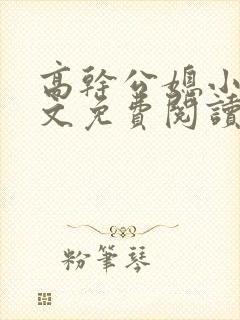 高幹公媳小
文免費閱讀
粉筆琴